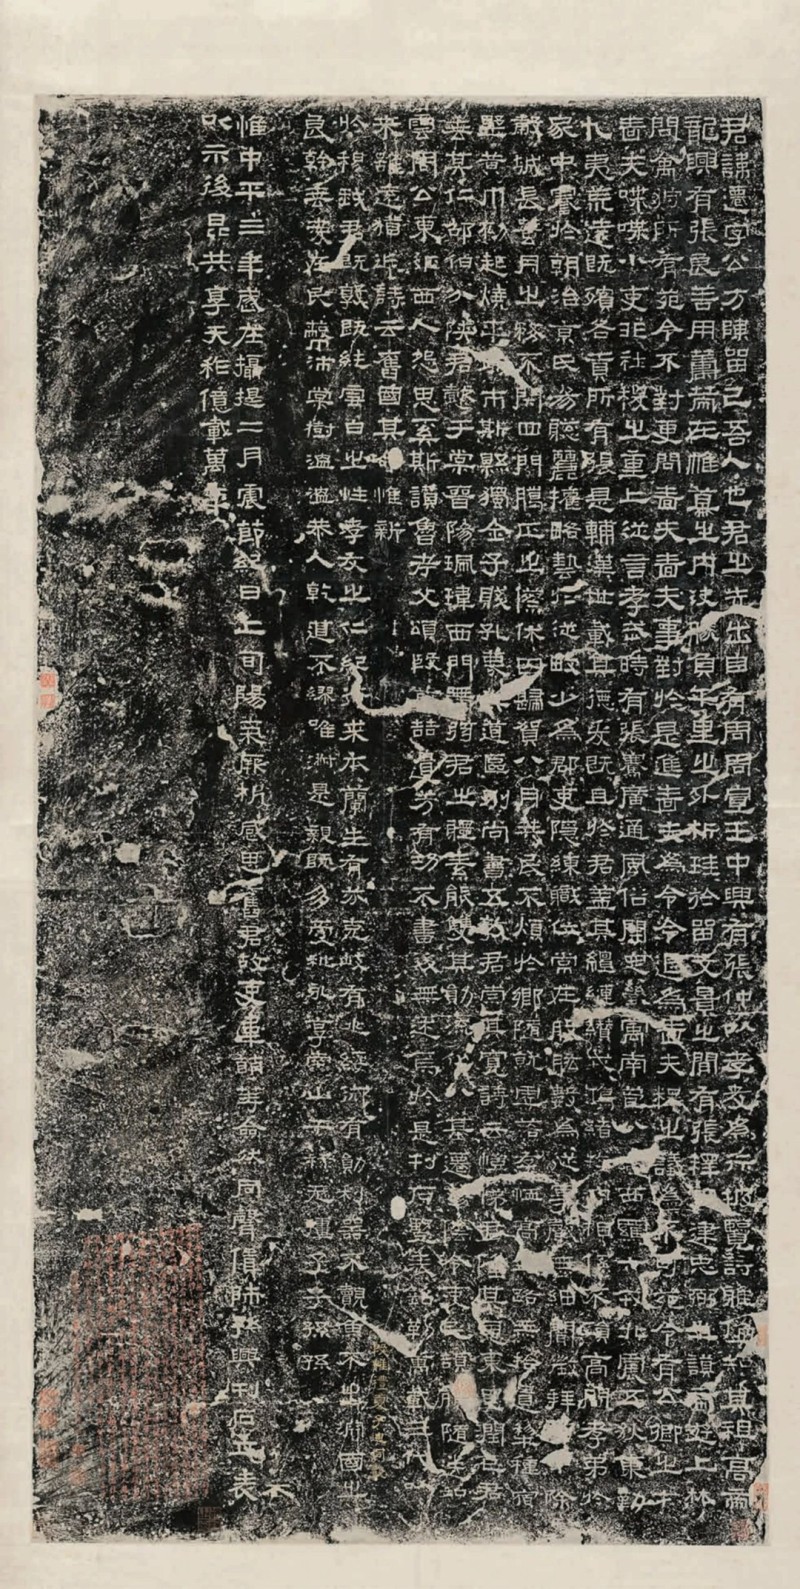 君諱遷字公方陳留己吾人也君之先出自有周周宣王中興有張仲以孝友為行披覽詩雅煥知其祖高帝
龍興有張良善用籌策在帷幕之內決勝負千里之外析珪於留文景之間有張釋之建忠弼之謨帝遊上林
問禽狩所有苑令不對更問嗇夫嗇夫事對於是進嗇夫為令令退為嗇夫釋之議為不可苑令有公卿之才
嗇夫喋喋小吏非社稷之重上從言孝武時有張騫廣通風俗開定畿寓南苞八蠻西羈六戎北震五狄東勤
九夷荒遠既殯各貢所有張是輔漢世載其德爰既且於君蓋其纏縺纘戎鴻緒牧守相係不殞高問孝弟於
家中謇於朝治京氏易聰麗權略藝於從畋少為郡吏隱練職位常在股肱數為從事聲無細聞徵拜郎中除
穀城長蠶月之務不閉四門臘正之祭休囚歸賀八月筭民不煩於鄉隨就虛落存恤高年路無拾遺犁種宿
野黃巾初起燒平城市斯縣獨全子賤孔蔑其道區別尚書五教君崇其寬詩云愷悌君隆其恩東里潤色君
垂其仁邵伯分陝君懿于棠晉陽珮瑋西門帶弦君之體素能雙其勛流化八基遷蕩陰令吏民頡頏隨送如
雲周公東征西人怨思奚斯讚魯考父頌殷前喆遺芳有功不書後無述焉於是刊石豎表銘勒萬載三代以
來雖遠猶近詩云舊國其命惟新
於穆我君既敦既純雪白之性孝友之仁紀行求本蘭生有芬克岐有兆綏御有勛利器不覿魚不出淵國之
良幹垂愛在民蔽沛棠樹溫溫恭人乾道不繆唯淑是親既多受祉永享南山干祿無疆子子孫孫
惟中平三年歲在攝提二月震節紀日上旬陽氣厥析感思舊君故吏韋萌等僉然同聲賃師孫興刊石立表
以示後昆共享天祚億載萬年